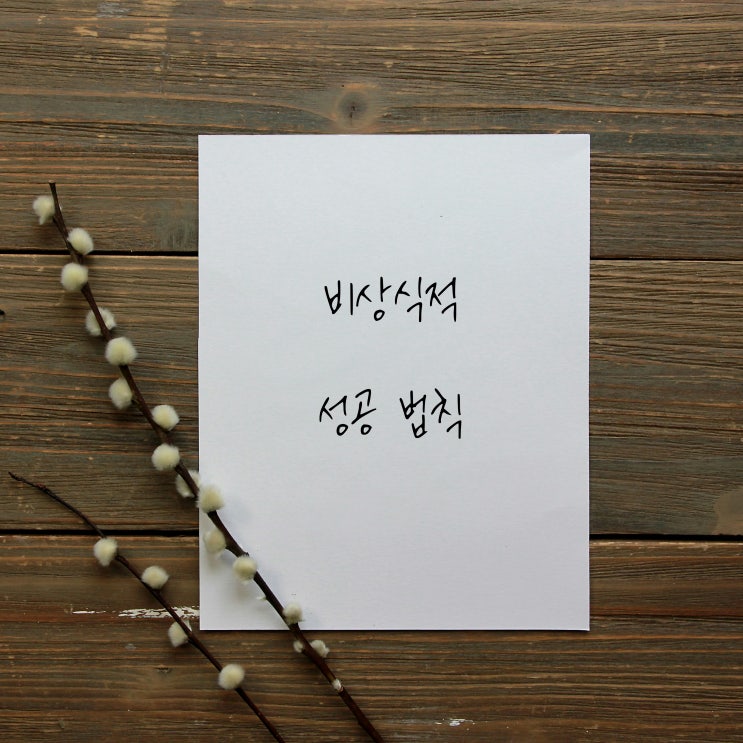 비상식적
성공 법칙